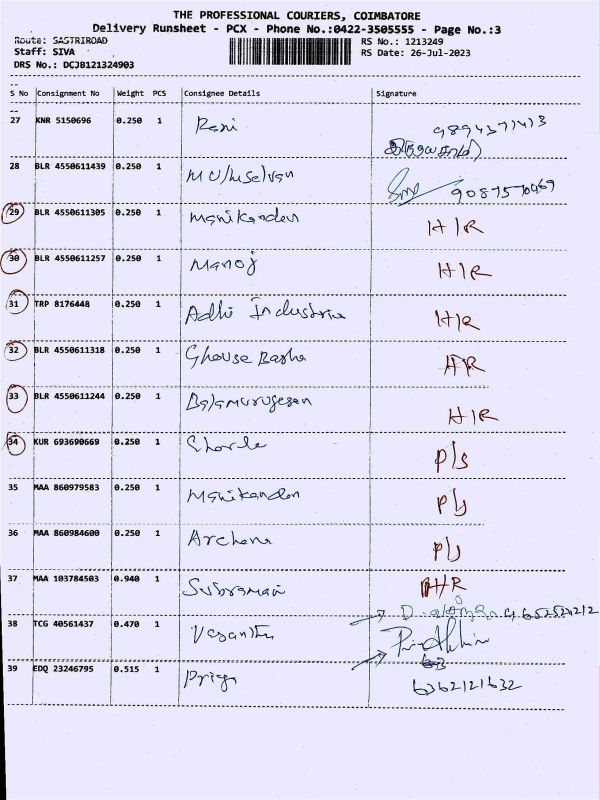 THE PROFESSIONAL COURIERS, COIMBATORE
Delivery Runsheet - PCX - Phone No.:0422-3505555 - Page No.:3
Route: SASTRIROAD RS No.: 1213249
Staff: SIVA RS Date: 26-Jul-2023
DRS No.: DCJB121324903
S No Consignment No Weight PCS Consignee Details Signature
27 KNR 5150696 0.250 1 Rani 9894377413
28 BLR 4550611439 0.250 1 9087570469
29 BLR 4550611305 0.250 1 Manikanden H/R
30 BLR 4550611257 0.250 1 Manoj H/R
31 TRP 8176448 0.250 1 Adhi Industria H/R
32 BLR 4550611318 0.250 1 Ghouse Basha H/R
33 BLR 4550611244 0.250 1 Balamurugesan H/R
34 KUR 693690669 0.250 1 P/S
35 MAA 860979583 0.250 1 Manikandan P/S
36 MAA 860984600 0.250 1 Archana P/S
37 MAA 103784503 0.940 1 Subramani H/R
38 TCG 40561437 0.470 1 Vasantha
39 EDQ 23246795 0.515 1 Priya 6362121632